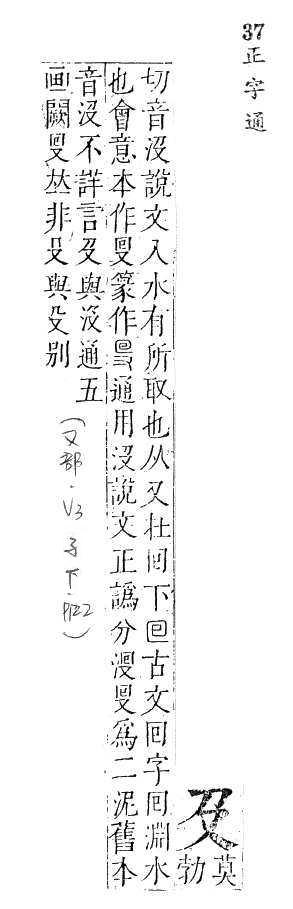 37 正字通
𠬛 莫勃
切音沒說文入水有所取也从又在囘下𡇌古文囘字囘淵水
也會意本作𠬸篆作通用沒說文正譌分𠬸爲二泥舊本
音沒不詳言𠬛與沒通五
画闕𠬸𠀤非𠬛與殳别
(又部·V3 子下·P22)